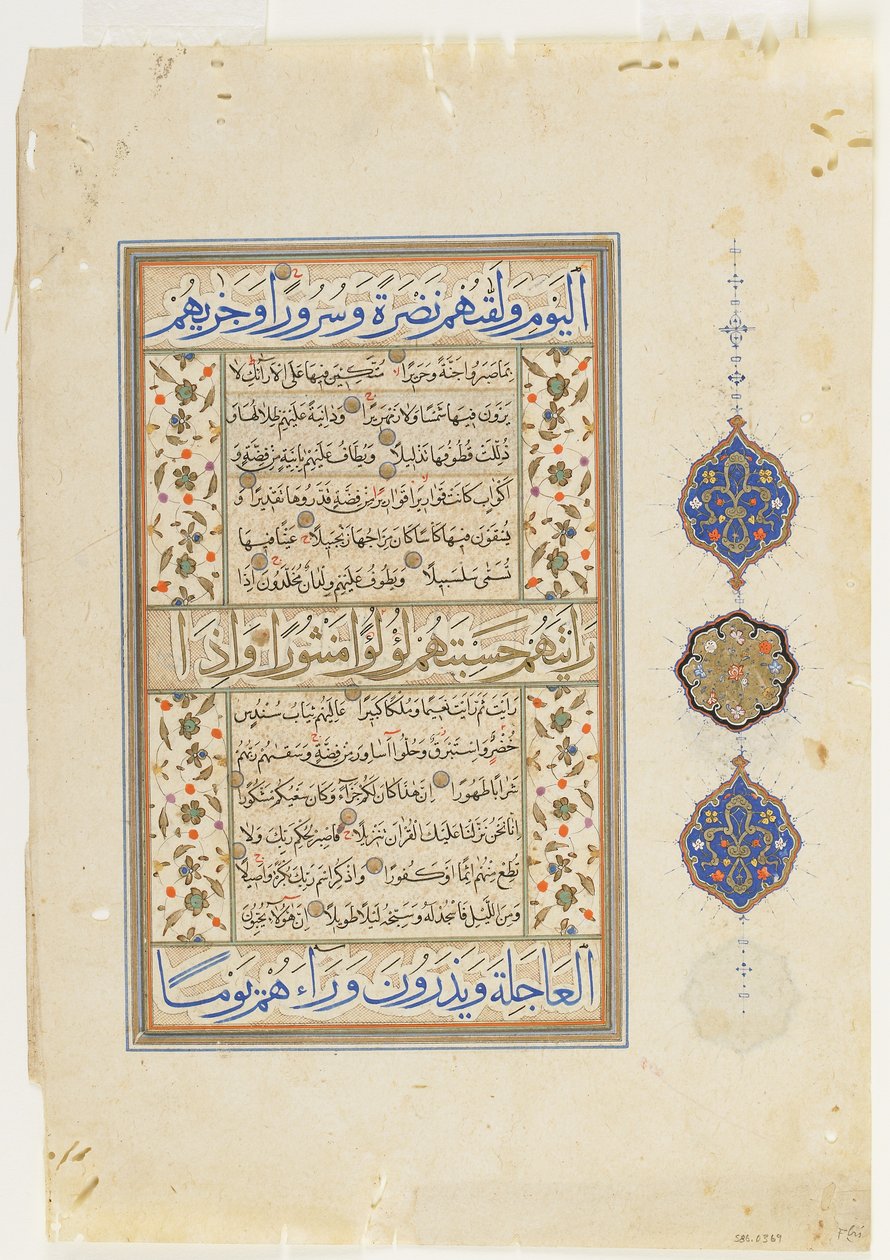 الْيَوْمِ وَلَقّٰىهُمْ نَضْرَةً وَسُرُورًا وَجَزٰيهُمْ
بِمَا صَبَرُوا جَنَّةً وَحَرِيرًا مُتَّكِئِينَ فِيهَا عَلَى الْاَرَائِكِ لَا
يَرَوْنَ فِيهَا شَمْسًا وَلَا زَمْهَرِيرًا وَدَانِيَةً عَلَيْهِمْ ظِلَالُهَا وَ
ذُلِّلَتْ قُطُوفُهَا تَذْلِيلًا وَيُطَافُ عَلَيْهِمْ بِاٰنِيَةٍ مِنْ فِضَّةٍ وَ
اَكْوَابٍ كَانَتْ قَوَارِيرَا قَوَارِيرَا مِنْ فِضَّةٍ قَدَّرُوهَا تَقْدِيرًا وَ
يُسْقَوْنَ فِيهَا كَاْسًا كَانَ مِزَاجُهَا زَنْجَبِيلًا عَيْنًا فِيهَا
تُسَمّٰى سَلْسَبِيلًا وَيَطُوفُ عَلَيْهِمْ وِلْدَانٌ مُخَلَّدُونَ اِذَا
رَاَيْتَهُمْ حَسِبْتَهُمْ لُؤْلُؤًا مَنْثُورًا وَاِذَا
رَاَيْتَ ثَمَّ رَاَيْتَ نَعِيمًا وَمُلْكًا كَبِيرًا عَالِيَهُمْ ثِيَابُ سُنْدُسٍ
خُضْرٌ وَاِسْتَبْرَقٌ وَحُلُّوا اَسَاوِرَ مِنْ فِضَّةٍ وَسَقٰىهُمْ رَبُّهُمْ
شَرَابًا طَهُورًا اِنَّ هٰذَا كَانَ لَكُمْ جَزَاءً وَكَانَ سَعْيُكُمْ مَشْكُورًا
اِنَّا نَحْنُ نَزَّلْنَا عَلَيْكَ الْقُرْاٰنَ تَنْزِيلًا فَاصْبِرْ لِحُكْمِ رَبِّكَ وَلَا
تُطِعْ مِنْهُمْ اٰثِمًا اَوْ كَفُورًا وَاذْكُرِ اسْمَ رَبِّكَ بُكْرَةً وَاَصِيلًا
وَمِنَ اللَّيْلِ فَاسْجُدْ لَهُ وَسَبِّحْهُ لَيْلًا طَوِيلًا اِنَّ هٰؤُلَاءِ يُحِبُّونَ
الْعَاجِلَةَ وَيَذَرُونَ وَرَاءَهُمْ يَوْمًا
S86.0369